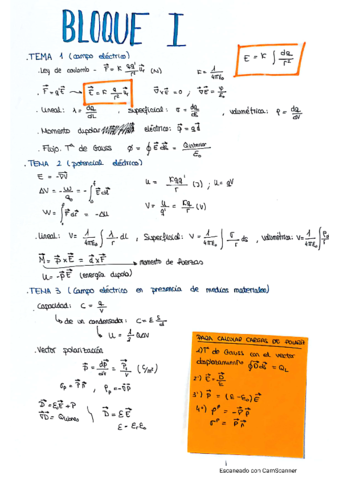 BLOQUE I
E = K ∫ dq/r²
.TEMA 1 (campo eléctrico)
.Ley de coulomb - F⃗ = K qq'/r² u⃗r (N)   K = 1/4πε₀
. F⃗ = q E⃗ → E⃗ = K q/r² u⃗r   ∇⃗×E⃗ = 0 ; ∇⃗E⃗ = ρ/ε₀
. Lineal: λ = dq/dL , superficial: σ = dq/ds , volumétrica: ρ = dq/dV
. Momento dipolar eléctrico: p⃗ = q d⃗
. Flujo. Tª de Gauss φ = ∮ E⃗ ds⃗ = Qinterior/ε₀
.TEMA 2 (potencial eléctrico)
E = -∇⃗V
ΔV = -W/q₀ = -∫ E⃗ dl⃗   U = Kqq'/r (J) ; U = qV
W = ∫ F⃗ dl⃗ = -ΔU   V = U/q' = Kq/r (V)
.Lineal: V = 1/4πε₀ ∫ λ/r dL , Superficial: V = 1/4πε₀ ∫ σ/r ds , volumétrica: V = 1/4πε₀ ∫ ρ/r
M⃗ = p⃗ × E⃗ = d⃗ × F⃗ → momento de fuerzas
U = -p⃗ E⃗ (energía dipolo)
.TEMA 3 (campo eléctrico en presencia de medios materiales)
Capacidad: C = Q/V
↳ de un condensador: C = ε S/d
↳ U = 1/2 QΔV
.Vector polarización
(C/m²)
D⃗ = ε₀E⃗ + P
D⃗ = εE⃗
ε = εrε₀
PARA CALCULAR CARGAS DE POLARIZ
1) Tª de Gauss con el vector
desplazamiento ∮ D⃗ ds⃗ = QL
2º) E⃗ = D⃗/ε
3º) P⃗ = (ε - ε₀) E⃗
4º) ρᵖ = -∇⃗ P⃗
σᵖ = P⃗ n⃗
Escaneado con CamScanner